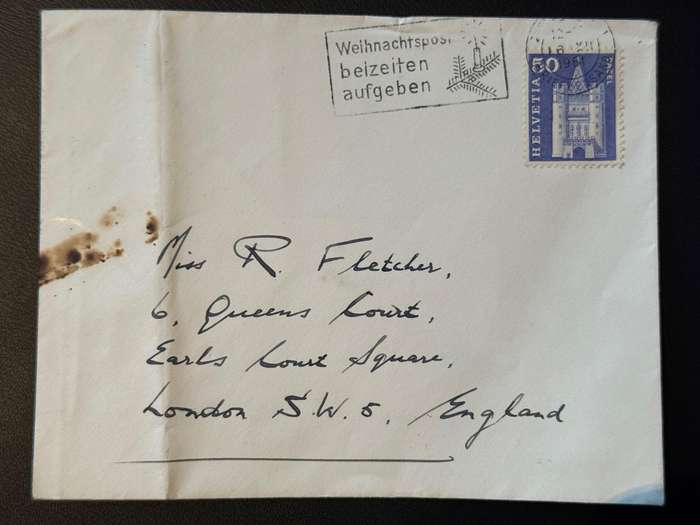 Weihnachtspost
beizeiten
aufgeben
1961
50
HELVETIA
BASEL
Miss R. Fletcher,
6, Queens Court,
Earls Court Square,
London S.W.5, England